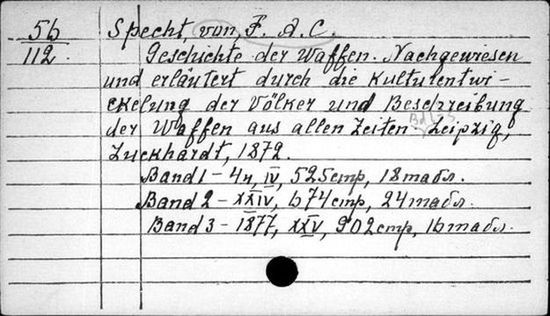 56
112.
Specht von, F. A. C.
Geschichte der Waffen. Nachgewiesen
und erläutert durch die Kulturentwi-
ckelung der Völker und Beschreibung
der Waffen aus allen Zeiten. Leipzig,
Luckhardt, 1872.
Band 1 - IV, 525 стр, 18 табл.
Band 2 - XXIV, 674 стр, 24 табл.
Band 3 - 1877, XXV, 902 стр, 16 табл.